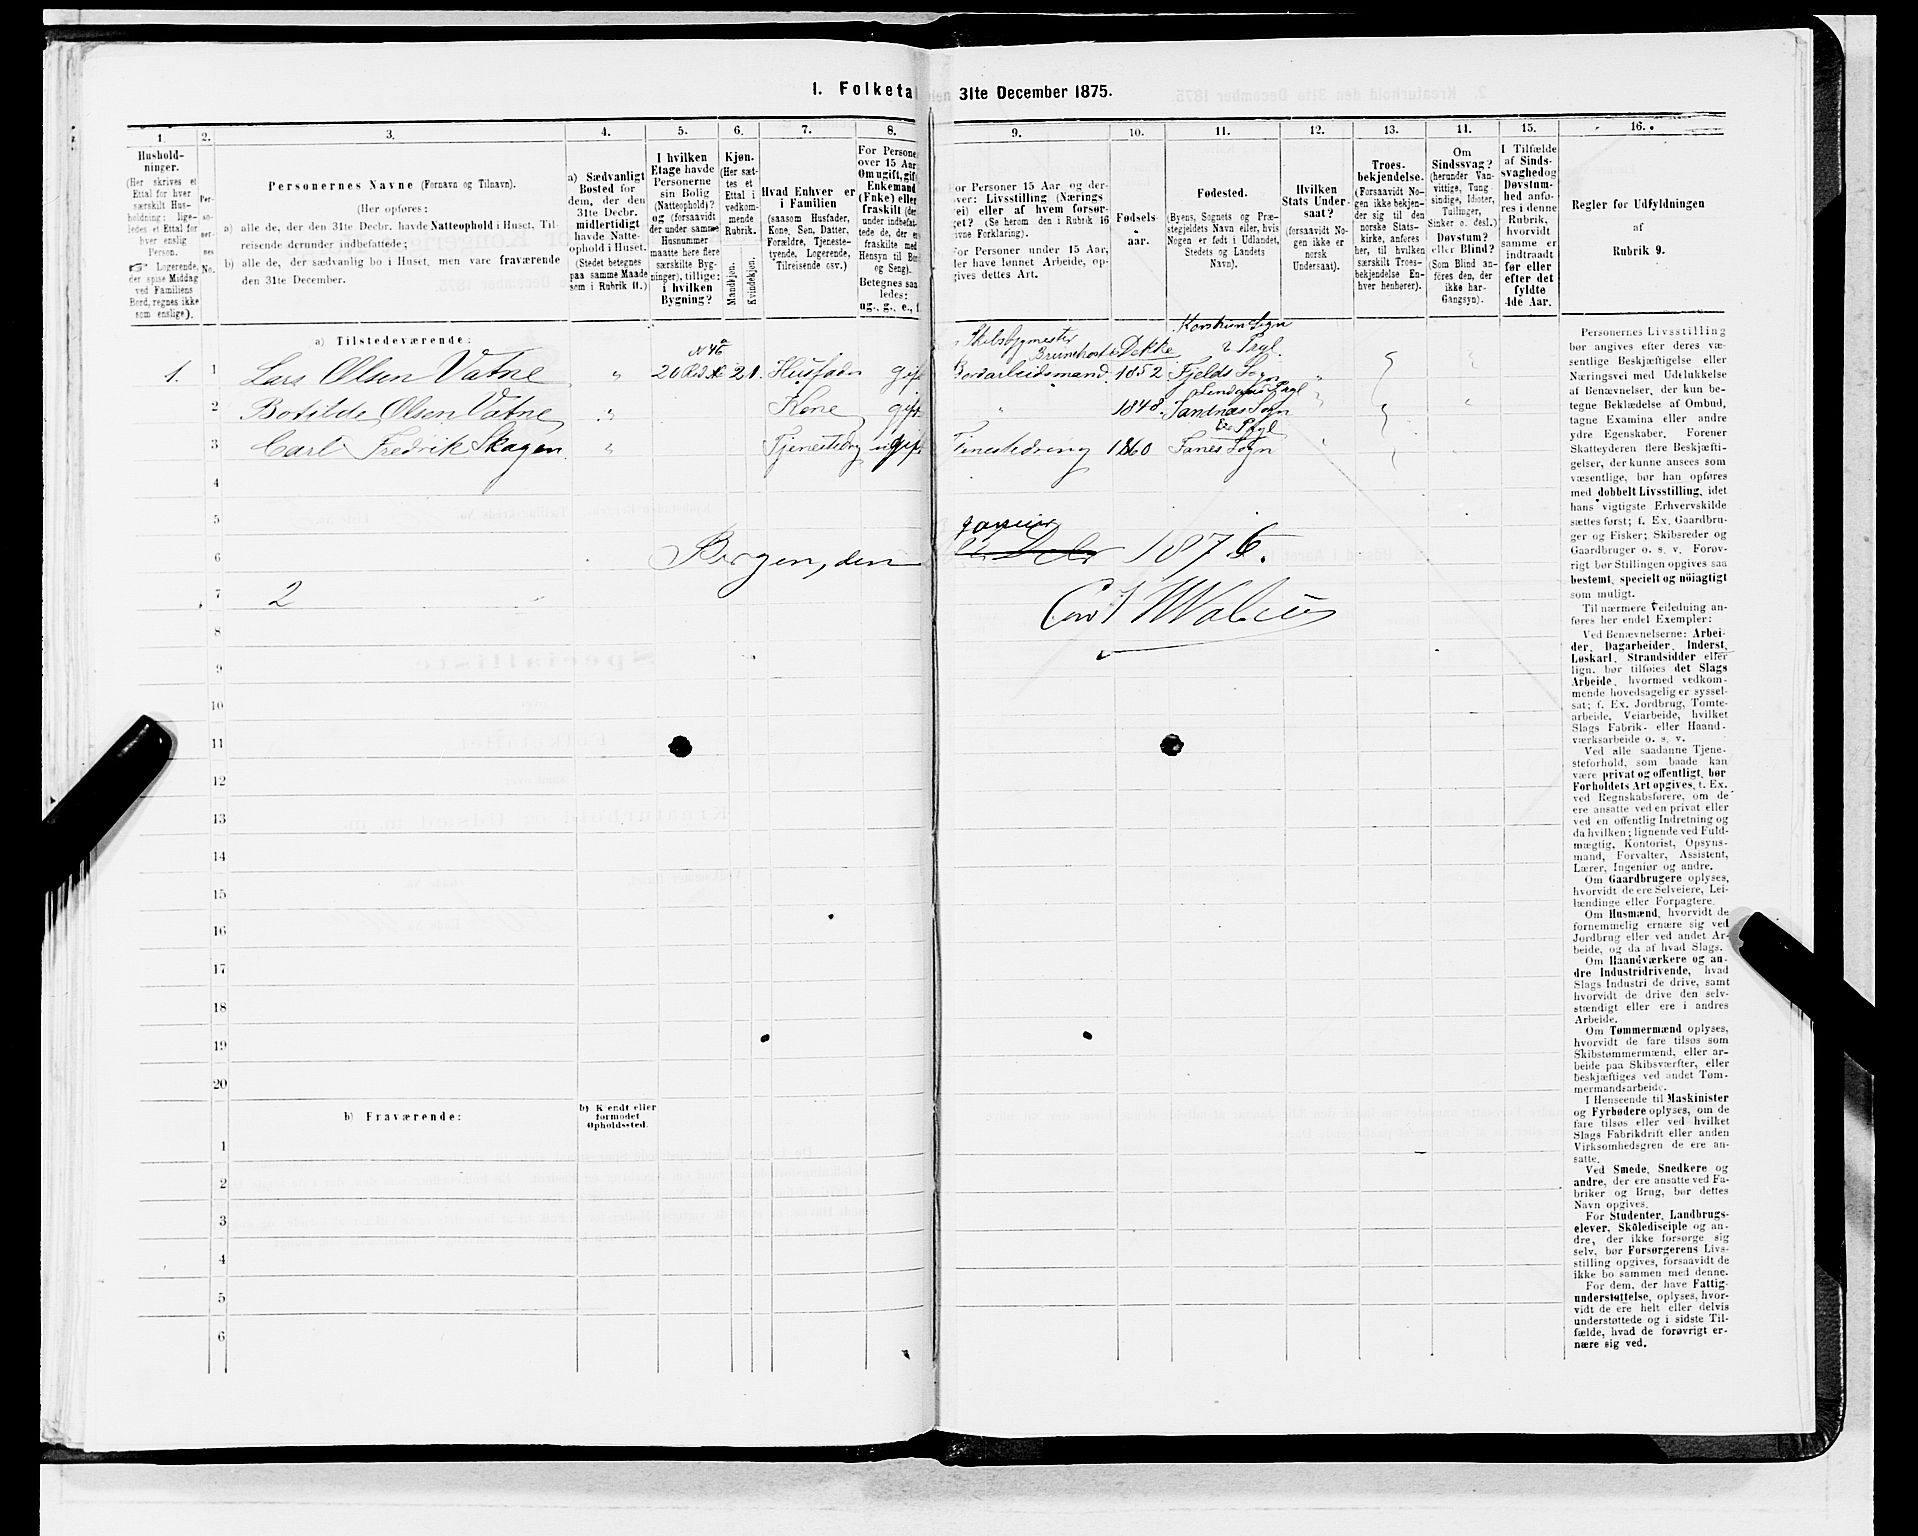 1. Folketa
31te December 1875.
1. 2. 3. 4. 5. 6. 7. 8. 9. 10. 11. 12. 13. 14. 15. 16.
Hushold-
ninger.
(Her skrives et
Ettal for hver
særskilt Hus-
holdning; lige-
ledes et Ettal for
hver enslig
Person.
☞ Logerende,
der spise Middag
ved Familiens
Bord, regnes ikke
som enslige).
Per-
so-
ner-
nes
No.
Personernes Navne (Fornavn og Tilnavn).
(Her opføres:
a) alle de, der den 31te Decbr. havde Natteophold i Huset, Til-
reisende derunder indbefattede;
b) alle de, der sædvanlig bo i Huset, men vare fraværende
den 31te December.
a) Sædvanligt
Bosted for
dem, der den
31te Decbr.
midlertidigt
havde Natte-
ophold i Huset.
(Stedet betegnes
paa samme Maade
som i Rubrik 11.)
I hvilken
Etage havde
Personerne
sin Bolig
(Natteophold)?
og (forsaavidt
der under samme
Husnummer
maatte høre flere
særskilte Byg-
ninger), tillige:
i hvilken
Bygning?
Kjøn.
(Her sæt-
tes et
Ettal i
vedkom-
mende
Rubrik.
Mandkjøn.
Kvindekjøn.
Hvad Enhver er
i Familien
(saasom Husfader,
Kone, Søn, Datter,
Forældre, Tjeneste-
tyende, Logerende,
Tilreisende osv.)
For Persone
over 15 Aar
Om ugift, gift
Enkemand
(Enke) eller
fraskilt (der
under indbefat-
tede de, der ere
fraskilte med
Hensyn til Bor
og Seng).
Betegnes saa
ledes:
ug., g., e., f.
or Personer 15 Aar og der-
over: Livsstilling (Nærings
ei) eller af hvem forsør-
get? (Se herom den i Rubrik 16
givne Forklaring).
For Personer under 15 Aar,
der have lønnet Arbeide, op-
gives dettes Art.
Fødsels-
aar.
Fødested.
(Byens, Sognets og Præ-
stegjeldets Navn eller, hvis
Nogen er født i Udlandet,
Stedets og Landets
Navn).
Hvilken
Stats Under-
saat?
(forsaavidt No-
gen ikke er
norsk
Undersaat).
Troes-
bekjendelse.
(Forsaavidt No-
gen ikke bekjen-
der sig til den
norske Stats-
kirke, anføres
her, til hvilken
særskilt Troes-
bekjendelse En-
hver henhører).
Om
Sindssvag?
(herunder Van-
vittige, Tung-
sindige, Idioter,
Tullinger,
Sinker o. desl.)
Døvstum?
eller Blind?
(Som Blind an-
føres den, der
ikke har
Gangsyn).
I Tilfælde
af Sinds-
svaghed og
Døvstum-
hed anfø-
res i denne
Rubrik,
hvorvidt
samme er
indtraadt
før eller
efter det
fyldte
4de Aar.
Regler for Udfyldningen
af
Rubrik 9.
a) Tilstedeværende:
1. 1 Lars Olsen Vatne Husfader gift 1852 Fjelds Sogn
2 Botilde Olsen Vatne Kone gift 1848 Sandnæs Sogn
3 Carl Fredrik Skagen ugift 1860 Fanes Sogn
4
5
6 Bergen, den 1876.
7 2
8
9
10
11
12
13
14
15
16
17
18
19
20
b) Fraværende:
b) Kjendt eller
formodet
Opholdssted.
1
2
3
4
5
6
Personernes Livsstilling
bør angives efter deres væ-
sentlige Beskjæftigelse eller
Næringsvei med Udelukkelse
af Benævnelser, der kun be-
tegne Beklædelse af Ombud,
tagne Examina eller andre
ydre Egenskaber. Forener
Skatteyderen flere Beskjæfti-
gelser, der kunne ansees som
væsentlige, bør han opføres
med dobbelt Livsstilling, idet
hans vigtigste Erhvervskilde
sættes først; f. Ex. Gaardbru-
ger og Fisker; Skibsreder og
Gaardbruger o. s. v. Forøv-
rigt bør Stillingen opgives saa
bestemt, specielt og nöiagtigt
som muligt.
Til nærmere Veiledning an-
føres her endel Exempler:
Ved Benævnelserne: Arbei-
der, Dagarbeider, Inderst,
Løskarl, Strandsidder eller
lign. bør tilføies det Slags
Arbeide, hvormed vedkom-
mende hovedsagelig er syssel-
sat; f. Ex. Jordbrug, Tomte-
arbeide, Veiarbeide, hvilket
Slags Fabrik- eller Haand-
værksarbeide o. s. v.
Ved alle saadanne Tjene-
steforhold, som baade kan
være privat og offentligt, bør
Forholdets Art opgives, f. Ex.
ved Regnskabsførere, om de
ere ansatte ved en privat eller
ved en offentlig Indretning og
da hvilken; lignende ved Fuld-
mægtig, Kontorist, Opsyns-
mand, Forvalter, Assistent,
Lærer, Ingeniør og andre.
Om Gaardbrugere oplyses,
hvorvidt de ere Selveiere, Lei-
lændinge eller Forpagtere.
Om Husmænd, hvorvidt de
fornemmelig ernære sig ved
Jordbrug eller ved andet Ar-
beide, og da af hvad Slags.
Om Haandværkere og an-
dre Industridrivende, hvad
Slags Industri de drive, samt
hvorvidt de drive den selv-
stændigt eller ere i andres
Arbeide.
Om Tømmermænd oplyses,
hvorvidt de fare tilsøs som
Skibstømmermænd, eller ar-
beide paa Skibsværfter, eller
beskjæftiges ved andet Tøm-
mermandsarbeide.
I Henseende til Maskinister
og Fyrbødere oplyses, om de
fare tilsøs eller ved hvilket
Slags Fabrikdrift eller anden
Virksomhedsgren de ere an-
satte.
Ved Smede, Snedkere og
andre, der ere ansatte ved Fa-
briker og Brug, bør dettes
Navn opgives.
For Studenter, Landbrugs-
elever, Skoledisciple og an-
dre, der ikke forsørge sig
selv, bør Forsørgerens Livs-
stilling opgives, forsaavidt de
ikke bo sammen med denne.
For dem, der have Fattig-
understøttelse, oplyses, hvor-
vidt de ere helt eller delvis
understøttede og i sidste Til-
fælde, hvad de forøvrigt er-
nære sig ved.